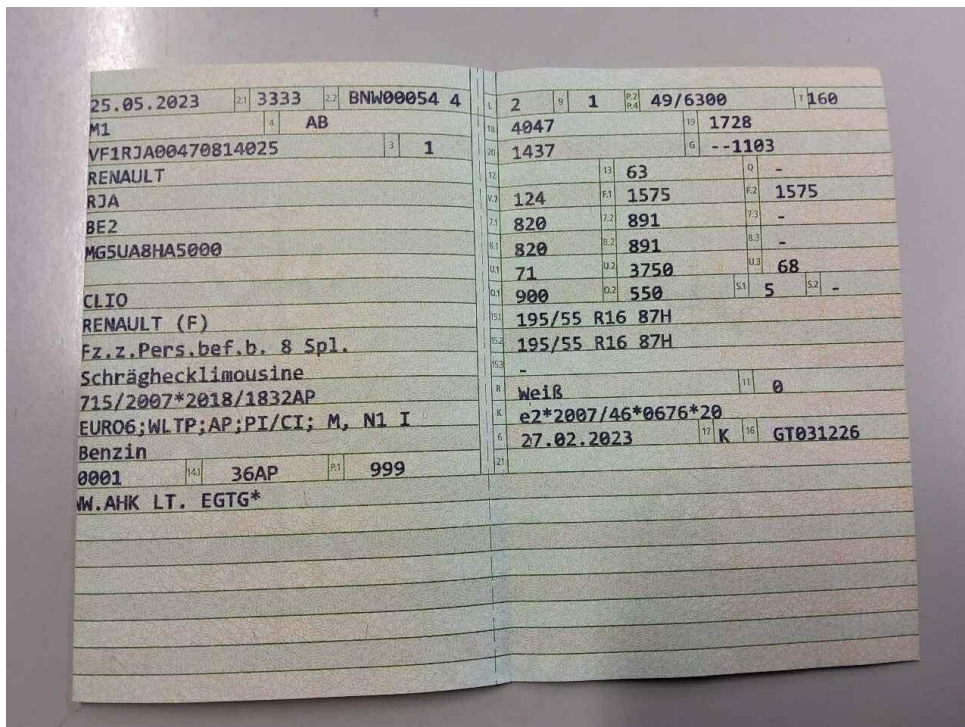 25.05.2023 2.1 3333 2.2 BNW00054 4
M1 4 AB
VF1RJA00470814025 3 1
RENAULT
RJA
BE2
MG5UA8HA5000
CLIO
RENAULT (F)
Fz.z.Pers.bef.b. 8 Spl.
Schräghecklimousine
715/2007*2018/1832AP
EURO6;WLTP;AP;PI/CI; M, N1 I
Benzin
0001 14.1 36AP P.1 999
WW.AHK LT. EGTG*
L 2 9 1 P.2 P.4 49/6300 T 160
18 4047 19 1728
20 1437 G --1103
12 13 63 Q -
V.7 124 F.1 1575 F.2 1575
7.1 820 7.2 891 7.3 -
8.1 820 8.2 891 8.3 -
U.1 71 U.2 3750 U.3 68
O.1 900 O.2 550 S.1 5 S.2 -
15.1 195/55 R16 87H
15.2 195/55 R16 87H
15.3 -
R Weiß 11 0
K e2*2007/46*0676*20
6 27.02.2023 17 K 16 GT031226
21